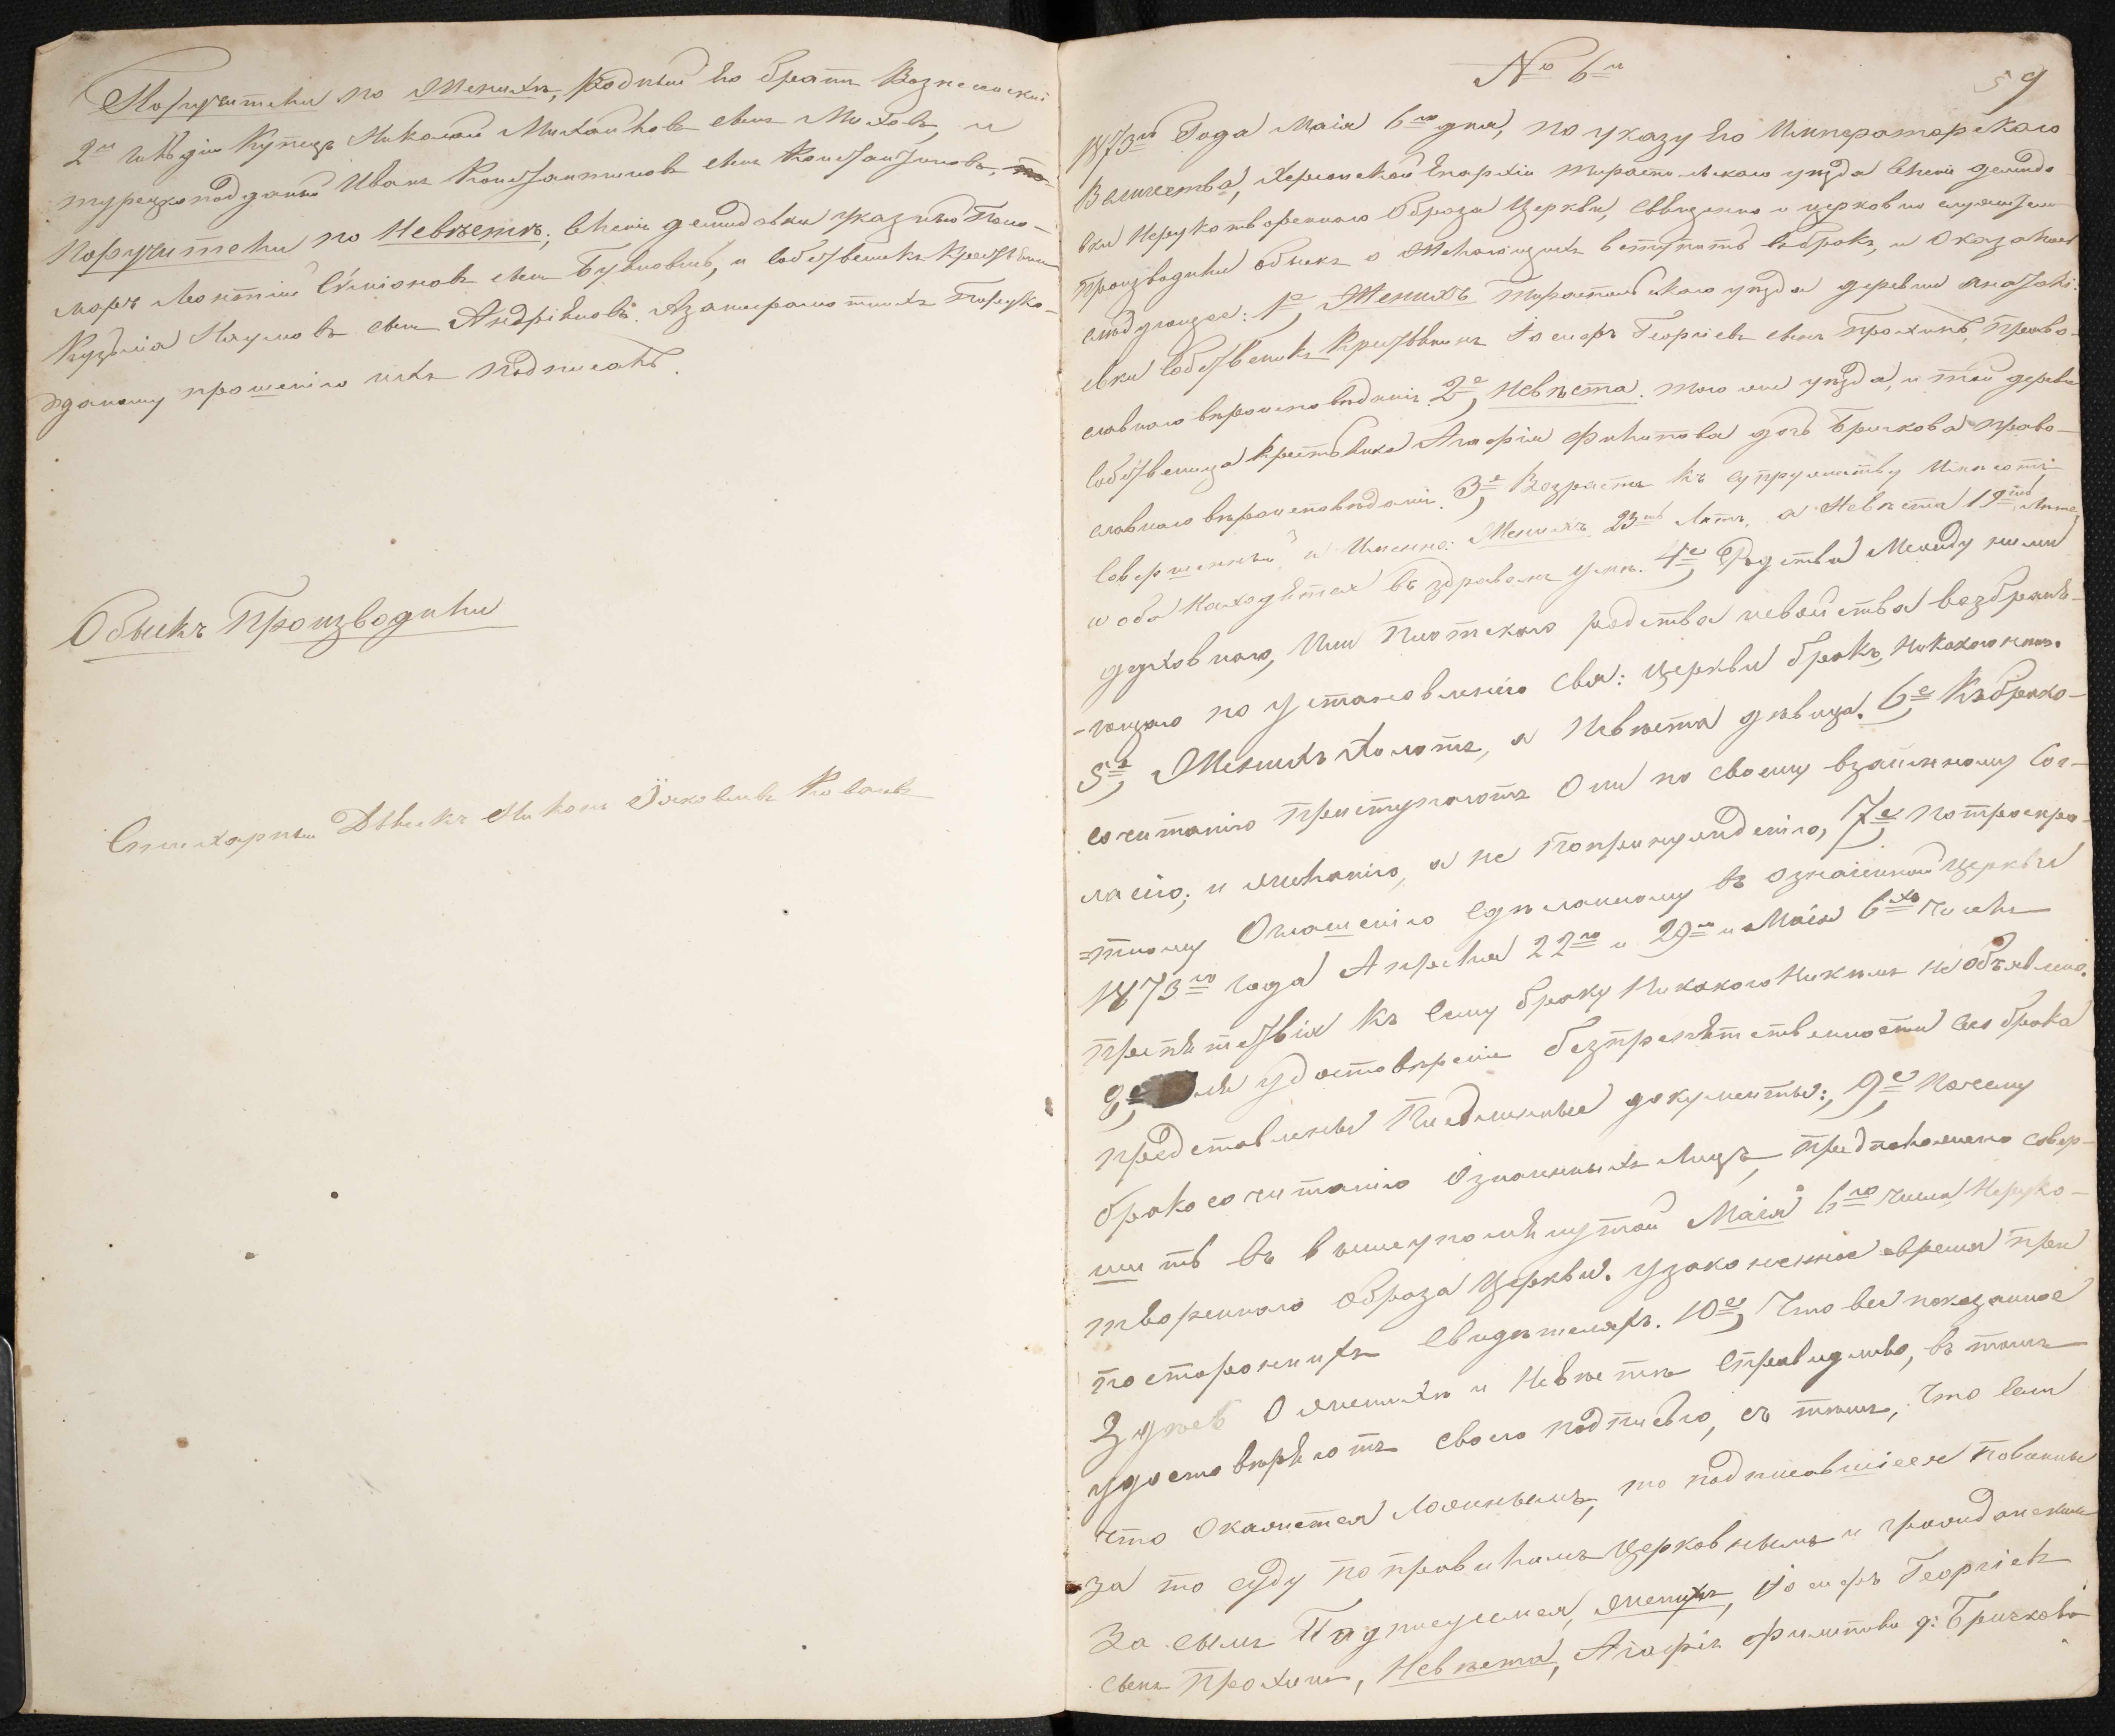 Поручители по Женихѣ, Родный Его братъ Вознесенскій
2й Гильдіи Купецъ Николай Михайловъ сынъ Митовъ, и
турецкоподданый Иванъ Константиновъ сынъ Константиновъ,
Поручители по Невѣстѣ; Селенія демидовки указный
Леонтій Симіоновъ сынъ и Собственикъ Крестьянинъ
Кузьма Наумовъ сынъ Андріяновъ. Азанеграмотныхъ Поруко-
даному прошенію ихъ подписалъ.
Обыскъ Производили
Стихарный Дьячекъ Никонъ Яковлевъ
№ 6й
59
1873го Года Маія 6го дня, по указу Его Императорскаго
Величества, Херсонской Епархіи тираспольскаго уѣзда Селенія демидо-
вки Нерукотвореннаго Образа Церкви, священно и церковно служители
Производили обыскъ о Желающихъ вступить въбракъ, и Оказалось
слѣдующее: 1е, Женихъ Тираспольскаго уѣзда деревни
Собственикъ Крестьянинъ Іосифъ Георгіевъ сынъ Прохинъ, Право-
славнаго вѣроисповѣданія. 2е, Невѣста. того же уѣзда, и той деревни
Собственица Крестьянка Агафія Филипова дочь Бричкова право-
славнаго вѣроисповѣданія. 3е, Возрастъ къ супружеству Имѣютъ
Совершенный, и Именно: Женихъ 23ть Лѣтъ, а Невѣста 19ть Лѣтъ
и оба Находятся въ здравомъ умѣ. 4е, Родства Между ними
духовнаго, Или Плотскаго родства исвойства возбраня-
-ющаго по установленію свя: Церкви бракъ, Никакого нѣтъ.
5е, Женихъ Холостъ, а Невѣста дѣвица. 6е, Къбрако-
сочитанію Приступаютъ Они по своему взаимному Сог-
ласію; и желанію, а не Попринужденію, 7е, Потроекра-
=тному Оглашенію Сдѣланному въ означенной церкви
1873го года Апреля 22го и 29го и Маія 6го числъ
препятствія къ Сему браку Никакого Никѣмъ Не объявлено.
8е, удостовѣреніе безпрепятственности сего брака
представлены Письменные документы:, 9е, Почему
бракосочитанію Означенныхъ Лицъ, предположено Совер-
шить въ вышеупомянутой Маія 6го числа Неруко-
твореннаго образа Церкви. узаконенное время при
постороннихъ Свидѣтеляхъ. 10е, Что все показанное
Здѣсь О женихѣ и Невѣстѣ Справидливо, въ томъ
удостовѣряютъ своею подписью, съ тѣмъ, Что Если
что Окажется Ложнымъ, то подписавшіеся повинны
за то суду по правиламъ Церковнымъ и гражданскимъ
За симъ Падписуемся, женихъ, Іосифъ Георгіевъ
сынъ Прохинъ, Невѣста, Агафія филипова д: Бричкова